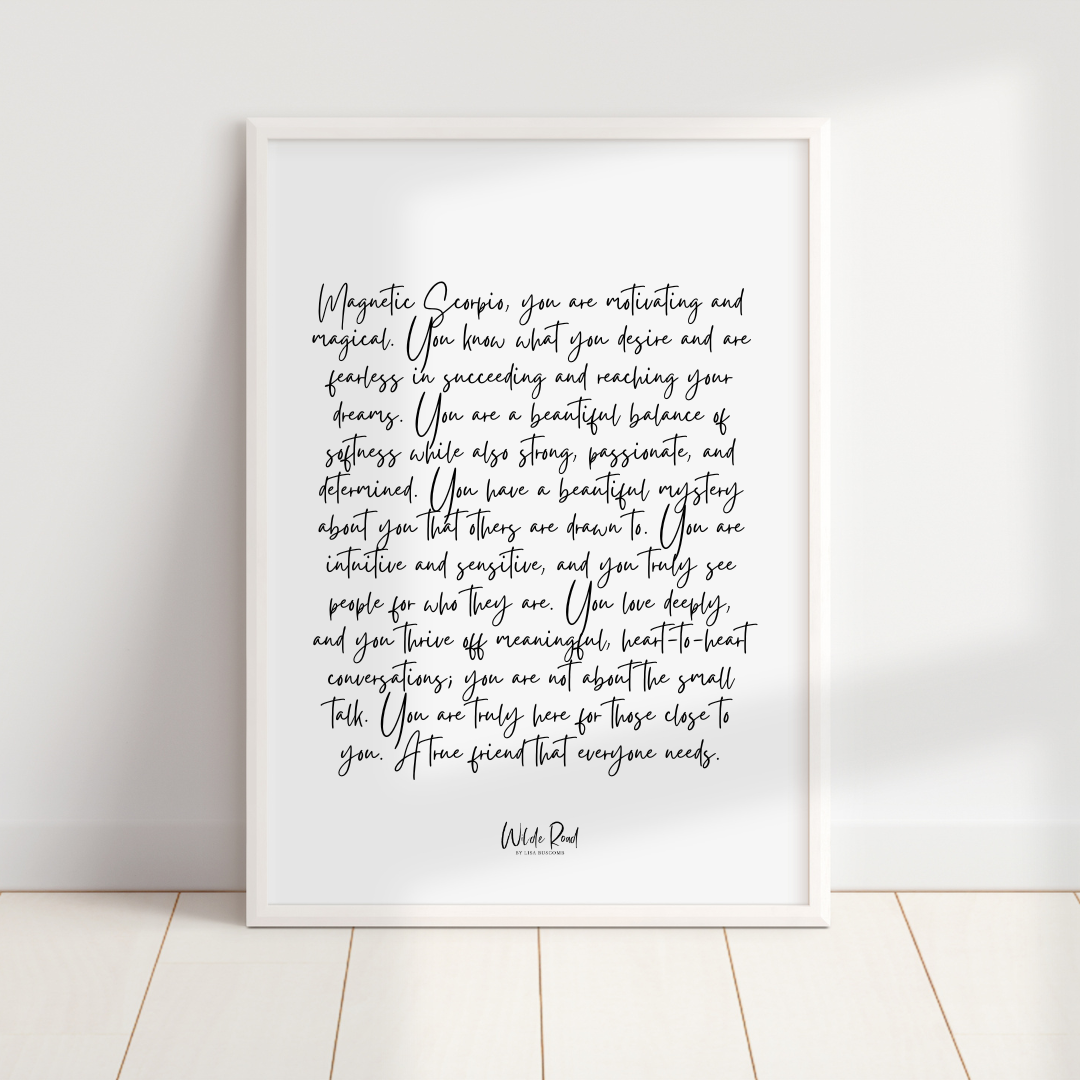 Magnetic Scorpio, you are motivating and
magical. You know what you desire and are
fearless in succeeding and reaching your
dreams. You are a beautiful balance of
softness while also strong, passionate, and
determined. You have a beautiful mystery
about you that others are drawn to. You are
intuitive and sensitive, and you truly see
people for who they are. You love deeply,
and you thrive off meaningful, heart-to-heart
conversations; you are not about the small
talk. You are truly here for those close to
you. A true friend that everyone needs.
Wilde Road
BY LISA BUSCOMB